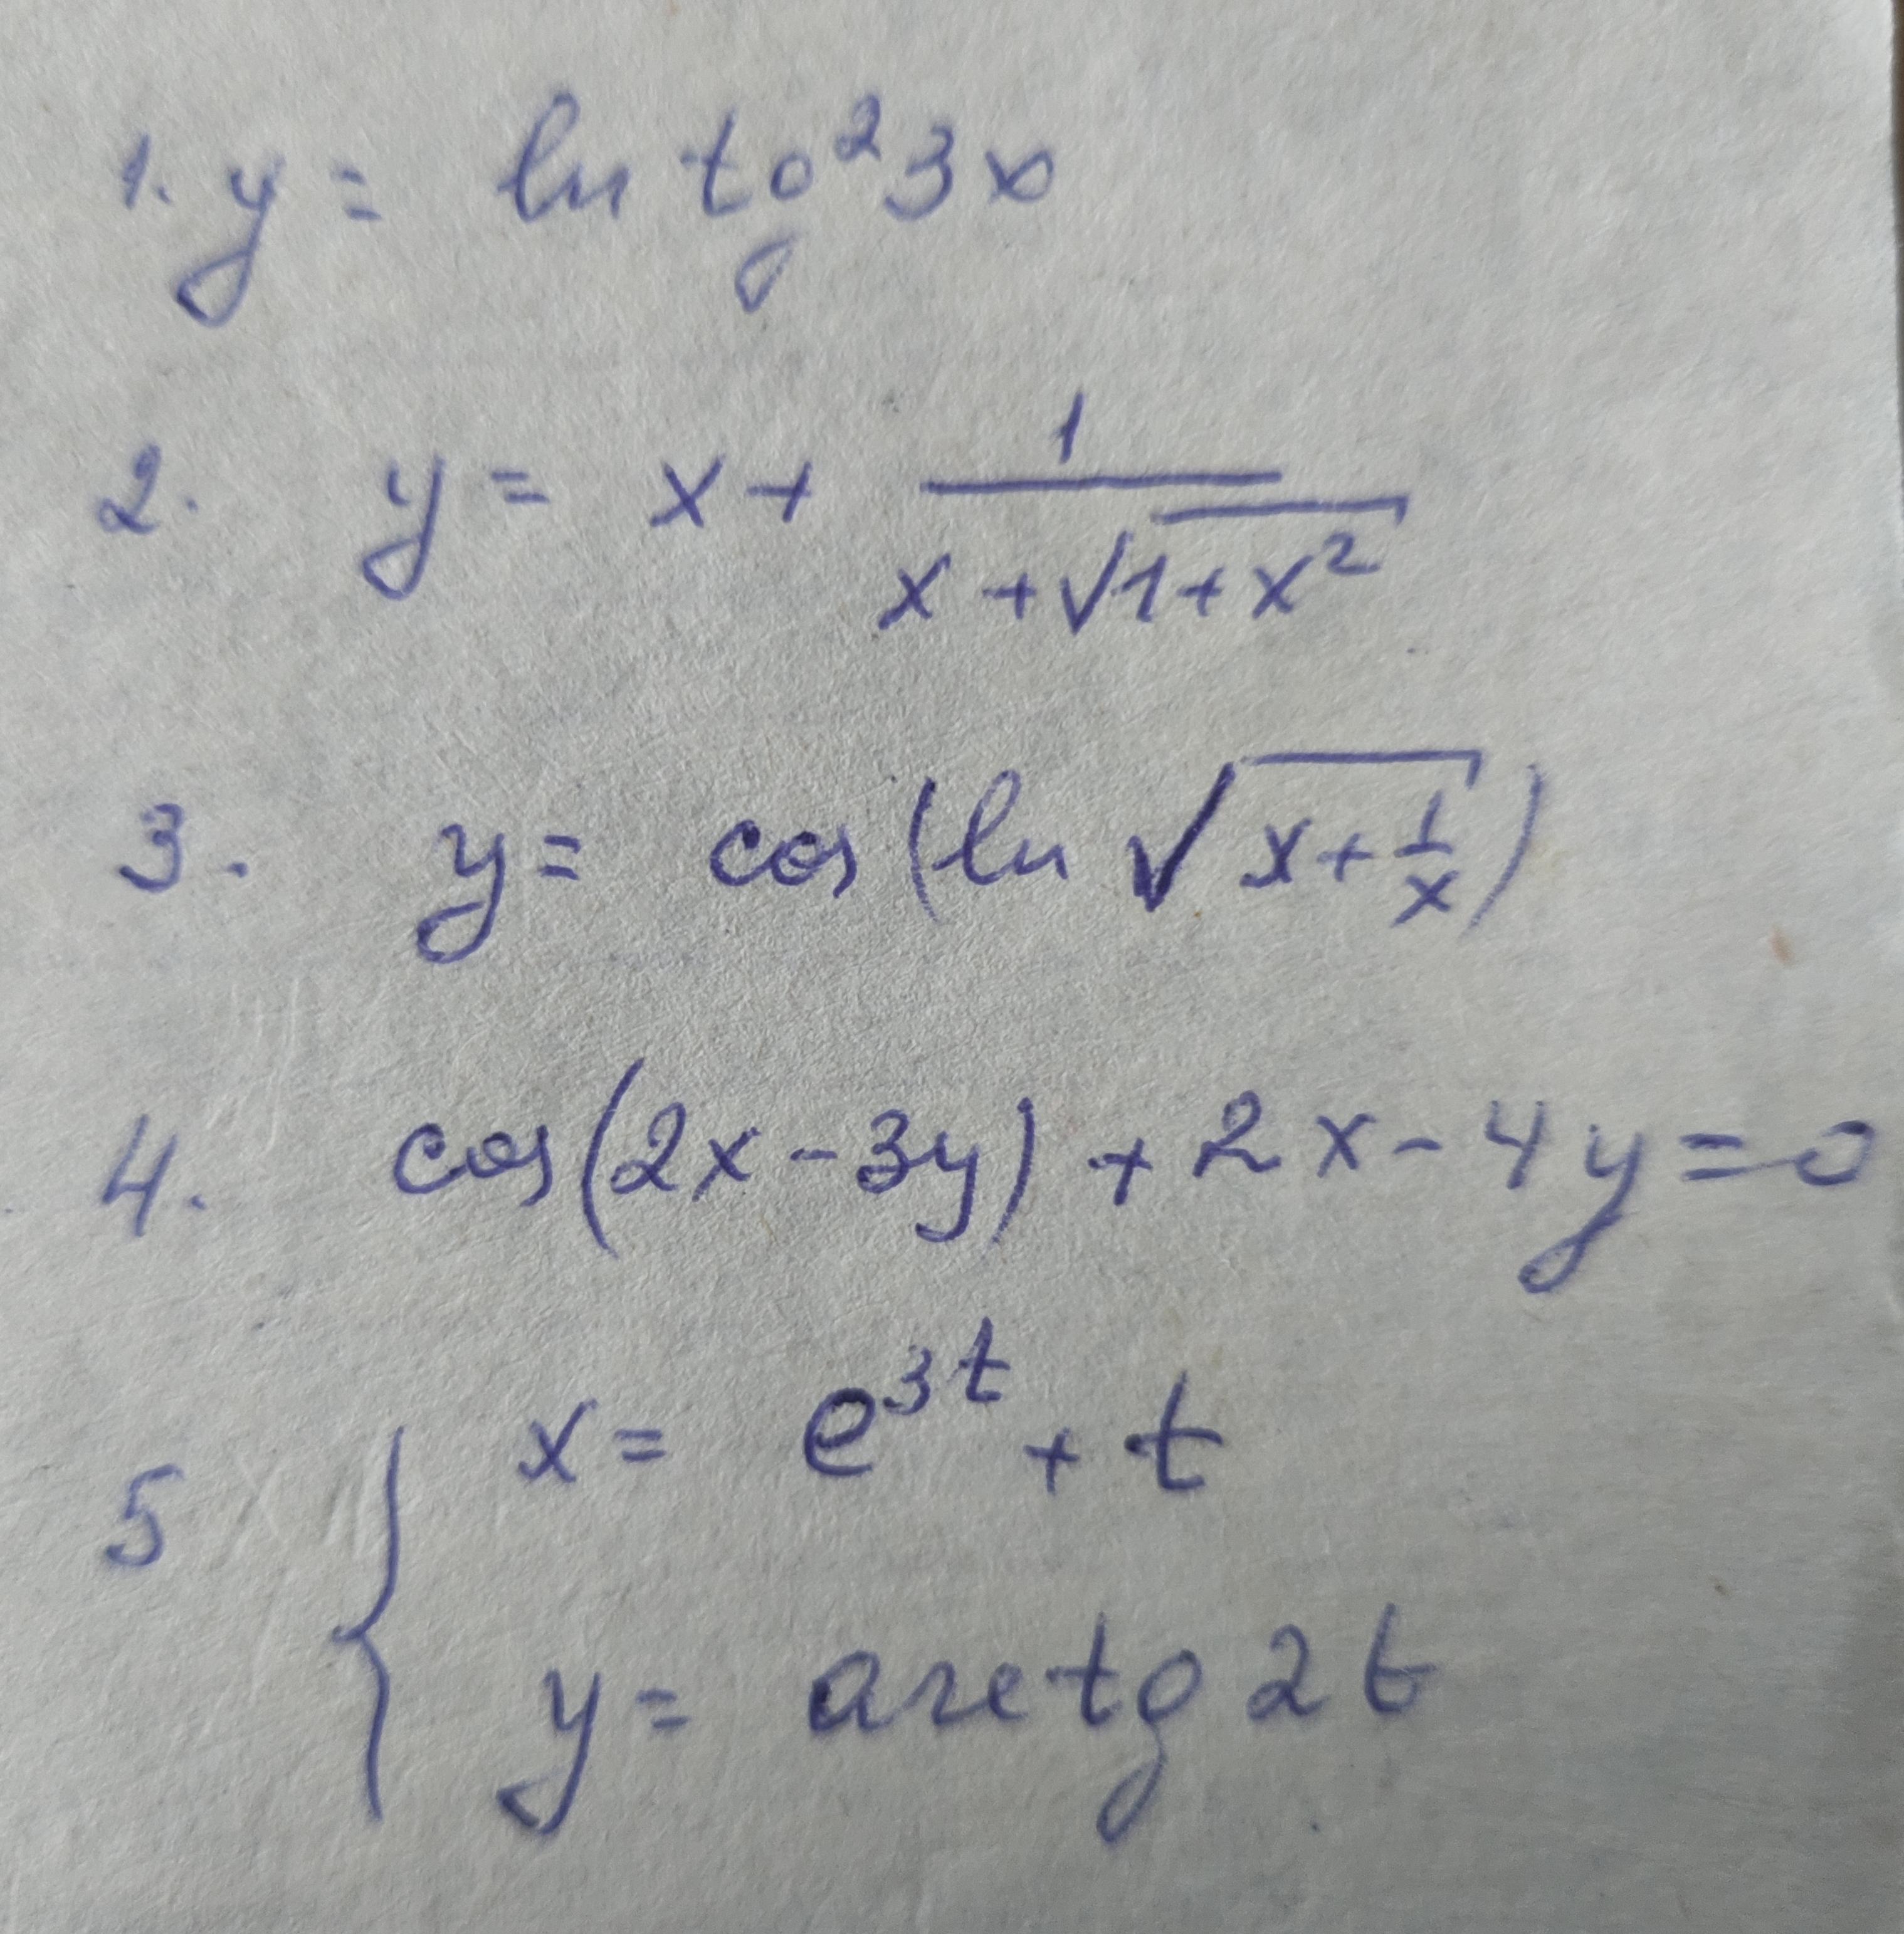 1. y = ln tg²3x
2. y = x + 1/(x + √(1 + x²))
3. y = cos(ln √(x + 1/x))
4. cos(2x - 3y) + 2x - 4y = 0
5 { x = e^(3t) + t
y = arctg 2t